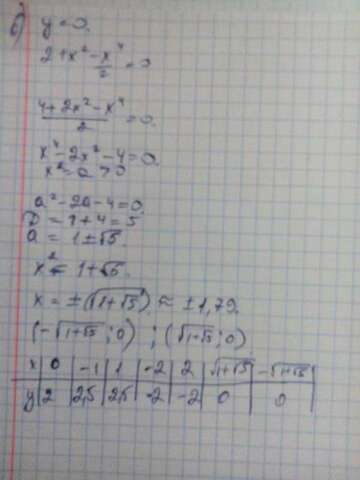 б) y=0.
2+x²-x⁴/2=0
4+2x²-x⁴/2=0.
x⁴-2x²-4=0.
x²=a>0
a²-2a-4=0.
D=1+4=5
a=1±√5.
x²=1+√5.
x=±(√1+√5)≈±1,79.
(-√1+√5;0);(√1+√5;0)
x|0|-1|1|-2|2|√1+√5|-√1+√5|
y|2|2,5|2,5|-2|-2|0|0|